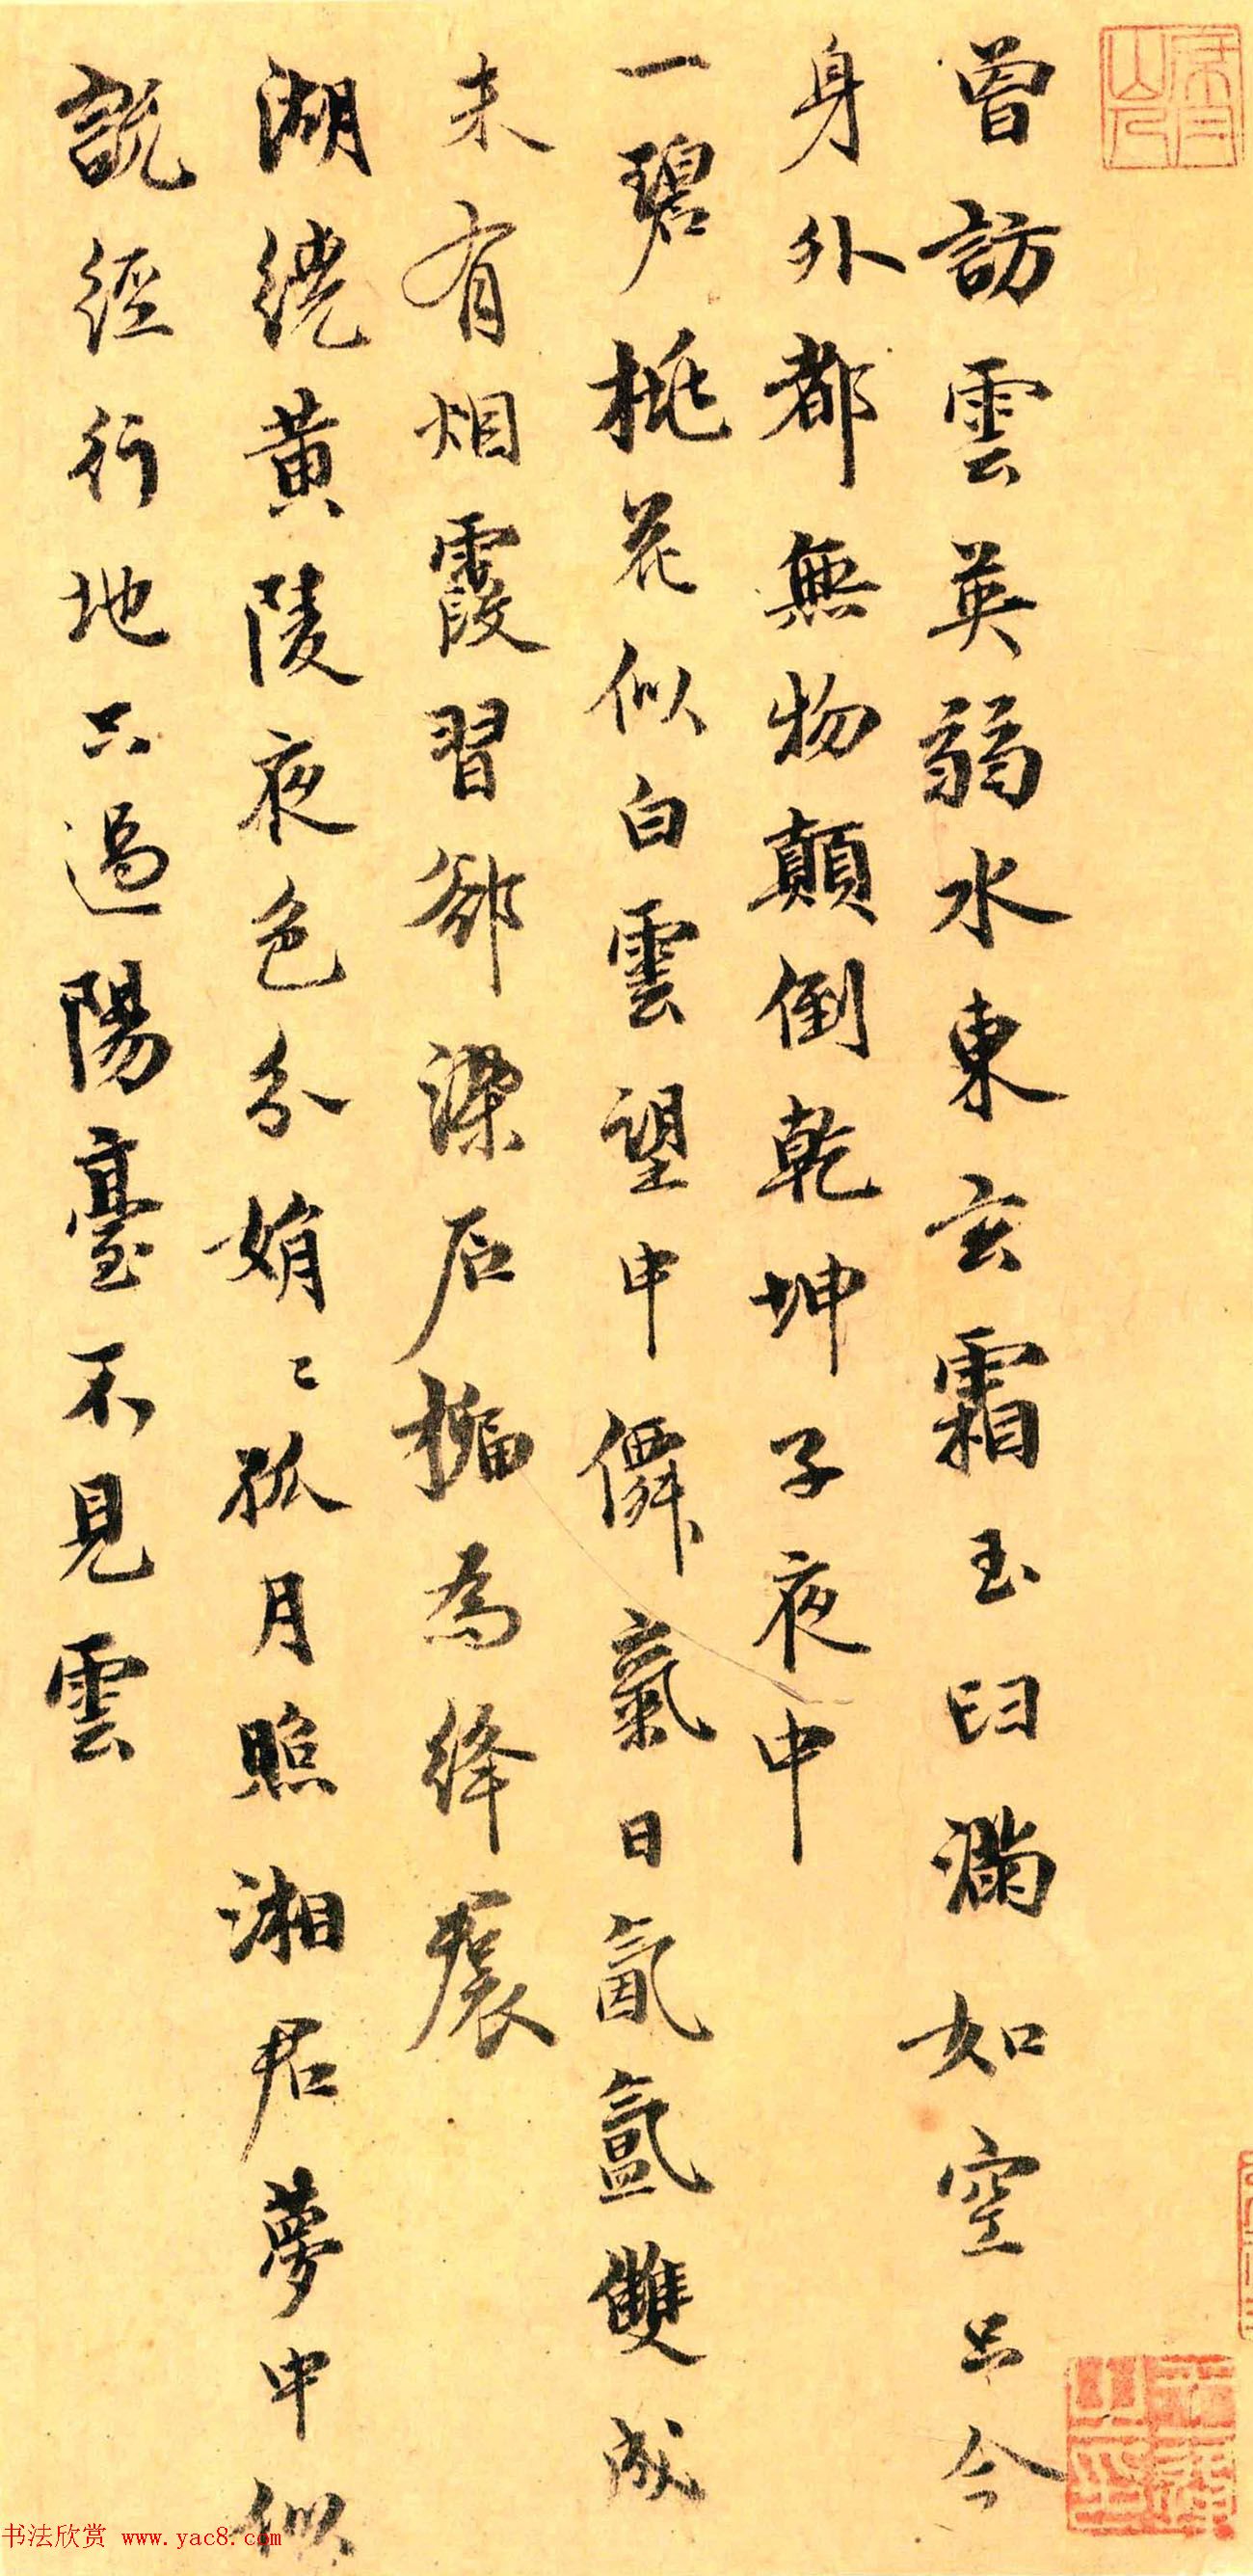 曾訪雲英弱水東玄霜玉臼滿如空只今
身外都無物顛倒乾坤子夜中
一碧桃花似白雲望中僊氣日氤氳雙成
未有烟霞習卻染石榴為絳裠
湖繞黃陵夜色分娟〻孤月照湘君夢中似
說經行地只過陽臺不見雲
书法欣赏 www.yac8.com